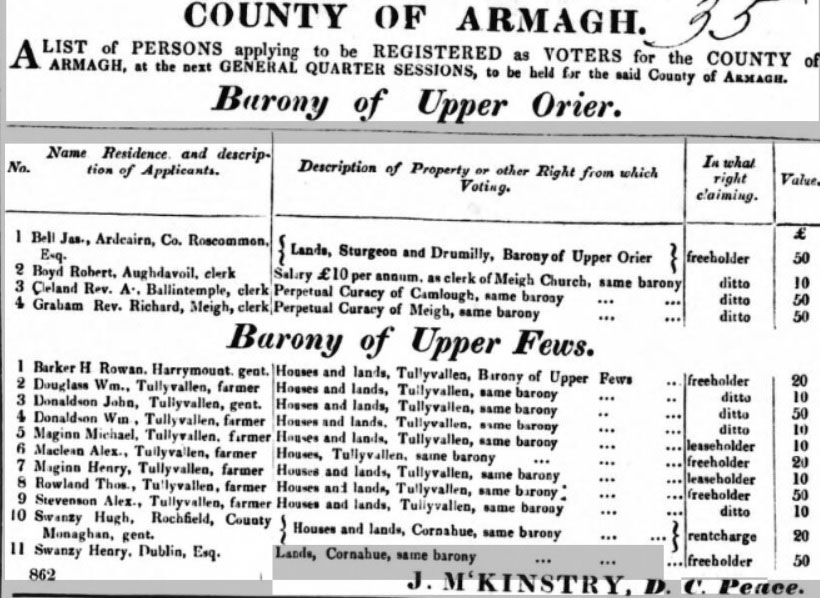 COUNTY OF ARMAGH. 35
A LIST of PERSONS applying to be REGISTERED as VOTERS for the COUNTY of
ARMAGH, at the next GENERAL QUARTER SESSIONS, to be held for the said County of ARMAGH.
Barony of Upper Orier.
No. Name Residence and description of Applicants. Description of Property or other Right from which Voting. In what right claiming. Value.
£
1 Bell Jas., Ardcairn, Co. Roscommon, Esq. { Lands, Sturgeon and Drumilly, Barony of Upper Orier } freeholder 50
2 Boyd Robert, Aughdavoil, clerk Salary £10 per annum, as clerk of Meigh Church, same barony ditto 10
3 Cleland Rev. A., Ballintemple, clerk Perpetual Curacy of Camlough, same barony ... ... ditto 50
4 Graham Rev. Richard, Meigh, clerk Perpetual Curacy of Meigh, same barony ... ... ditto 50
Barony of Upper Fews.
1 Barker H Rowan, Harrymount, gent. Houses and lands, Tullyvallen, Barony of Upper Fews .. freeholder 20
2 Douglass Wm., Tullyvallen, farmer Houses and lands, Tullyvallen, same barony ... .. ditto 10
3 Donaldson John, Tullyvallen, gent. Houses and lands, Tullyvallen, same barony ... ... ditto 50
4 Donaldson Wm., Tullyvallen, farmer Houses and lands, Tullyvallen, same barony .. ... ditto 10
5 Maginn Michael, Tullyvallen, farmer Houses and lands, Tullyvallen, same barony ... ... leaseholder 10
6 Maclean Alex., Tullyvallen, farmer Houses, Tullyvallen, same barony ... ... ... freeholder 20
7 Maginn Henry, Tullyvallen, farmer Houses and lands, Tullyvallen, same barony ... ... leaseholder 10
8 Rowland Thos., Tullyvallen, farmer Houses and lands, Tullyvallen, same barony ... ... freeholder 50
9 Stevenson Alex., Tullyvallen, farmer Houses and lands, Tullyvallen, same barony ... ... ditto 10
10 Swanzy Hugh, Rochfield, County Monaghan, gent. { Houses and lands, Cornahue, same barony ... ... } rentcharge 20
11 Swanzy Henry, Dublin, Esq. Lands, Cornahue, same barony ... ... ... freeholder 50
862 J. McKINSTRY, D. C. Peace.